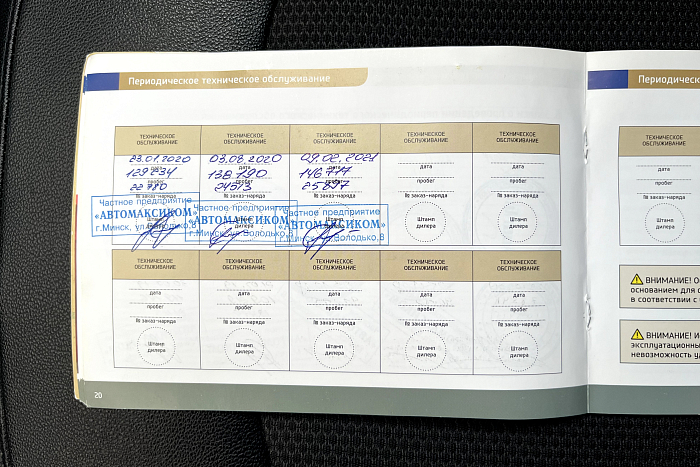 Периодическое техническое обслуживание
ТЕХНИЧЕСКОЕ
ОБСЛУЖИВАНИЕ
23.01.2020
дата
129234
пробег
22780
№ заказ-наряда
Частное предприятие
«АВТОМАКСИКОМ»
г.Минск, ул.Володько,8
ТЕХНИЧЕСКОЕ
ОБСЛУЖИВАНИЕ
03.08.2020
дата
138790
пробег
№ заказ-наряда
Частное предприятие
«АВТОМАКСИКОМ»
г.Минск, ул.Володько,8
ТЕХНИЧЕСКОЕ
ОБСЛУЖИВАНИЕ
09.02.2021
дата
146777
пробег
25897
№ заказ-наряда
Частное предприятие
«АВТОМАКСИКОМ»
г.Минск, ул.Володько,8
ТЕХНИЧЕСКОЕ
ОБСЛУЖИВАНИЕ
дата
пробег
№ заказ-наряда
Штамп
дилера
ТЕХНИЧЕСКОЕ
ОБСЛУЖИВАНИЕ
дата
пробег
№ заказ-наряда
Штамп
дилера
ТЕХНИЧЕСКОЕ
ОБСЛУЖИВАНИЕ
дата
пробег
№ заказ-наряда
Штамп
дилера
ТЕХНИЧЕСКОЕ
ОБСЛУЖИВАНИЕ
дата
пробег
№ заказ-наряда
Штамп
дилера
ТЕХНИЧЕСКОЕ
ОБСЛУЖИВАНИЕ
дата
пробег
№ заказ-наряда
Штамп
дилера
ТЕХНИЧЕСКОЕ
ОБСЛУЖИВАНИЕ
дата
пробег
№ заказ-наряда
Штамп
дилера
ТЕХНИЧЕСКОЕ
ОБСЛУЖИВАНИЕ
дата
пробег
№ заказ-наряда
Штамп
дилера
20
Периодическ
ТЕХНИЧЕСКОЕ
ОБСЛУЖИВАНИЕ
дата
пробег
№ заказ-наряда
Штамп
дилера
ВНИМАНИЕ!
основанием для
в соответствии с
ВНИМАНИЕ! И
эксплуатационны
невозможность у